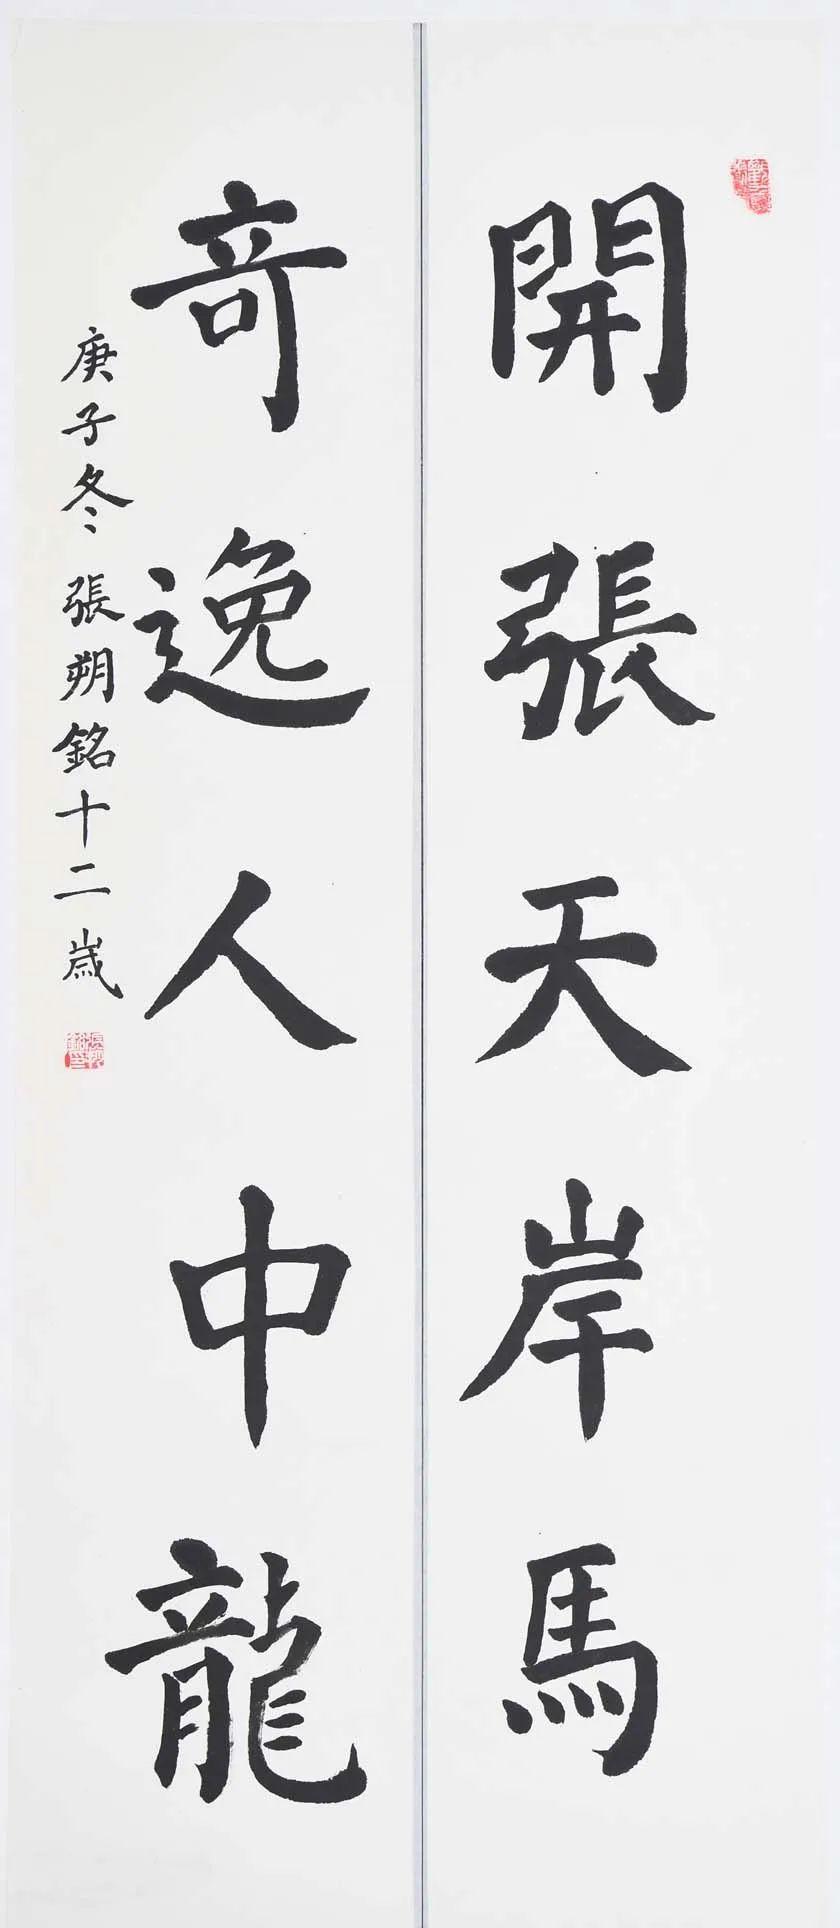 開張天岸馬
奇逸人中龍
庚子冬 張朔銘十二歲